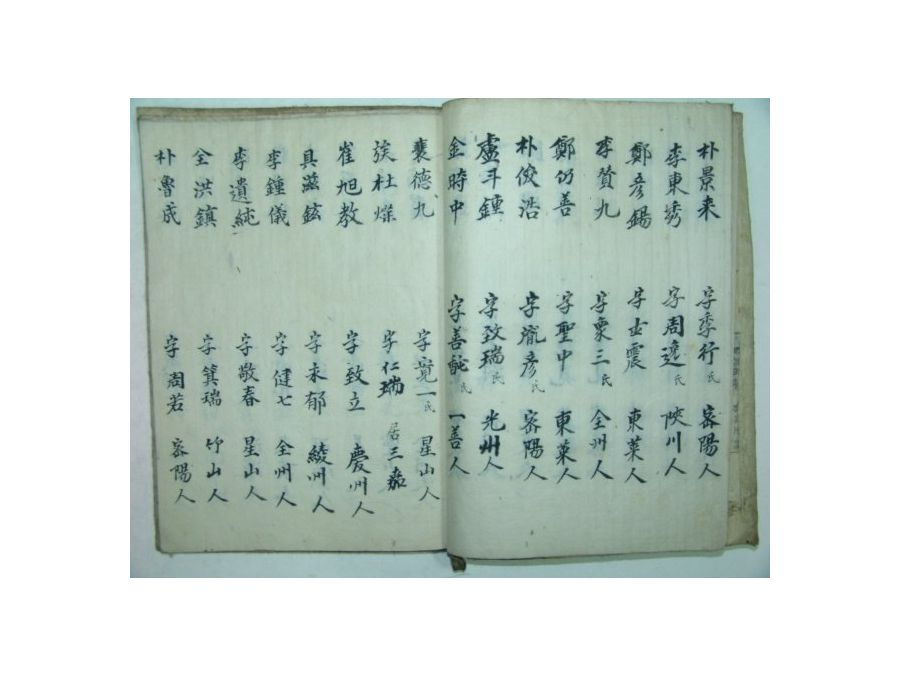 朴景来 字季行氏 密陽人
李東秀 字周逸氏 陜川人
鄭彦錫 字士震 東萊人
李賛九 字東三氏 全州人
鄭仍善 字聖中 東萊人
朴俊浩 字胤彦氏 密陽人
盧斗鍾 字致瑞氏 光州人
金時中 字善 氏 一善人
裵德九 字寛一氏 星山人
族杜燦 字仁瑞 居三嘉
崔旭教 字致立 慶州人
具滋鉉 字未郁 綾州人
李鍾儀 字健七 全州人
李遺純 字敬春 星山人
全洪鎮 字箕瑞 竹山人
朴魯成 字周若 密陽人